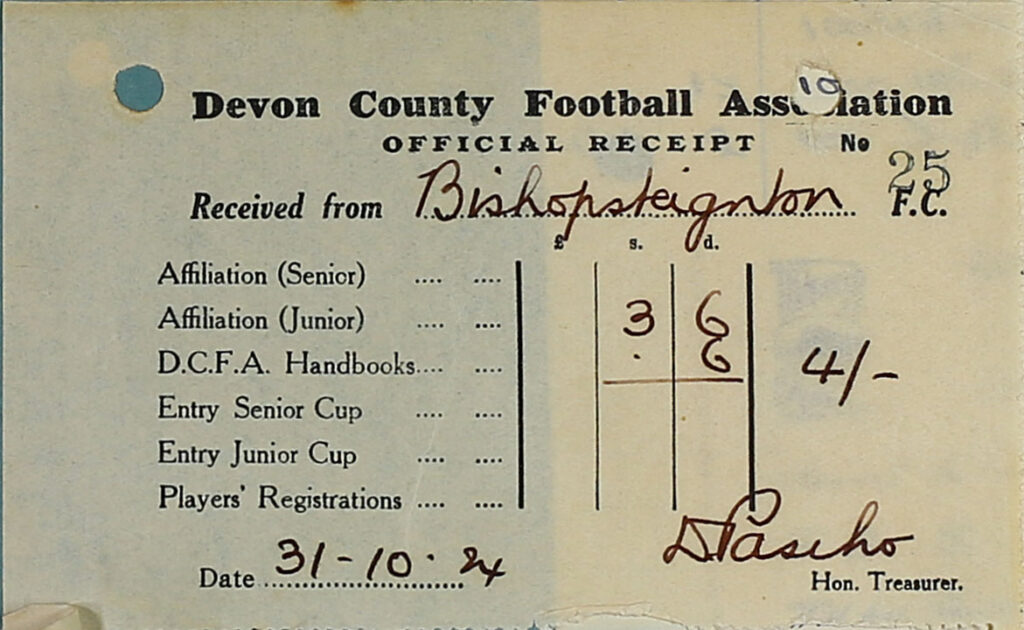 19
Devon County Football Association
OFFICIAL RECEIPT No 25
Received from Bishopsteignton F.C.
£ s. d.
Affiliation (Senior) .... ....
Affiliation (Junior) .... .... 3 6
D.C.F.A. Handbooks.... .... . 6 4/-
Entry Senior Cup .... ....
Entry Junior Cup .... ....
Players' Registrations .... ....
Date 31-10.24
Hon. Treasurer.